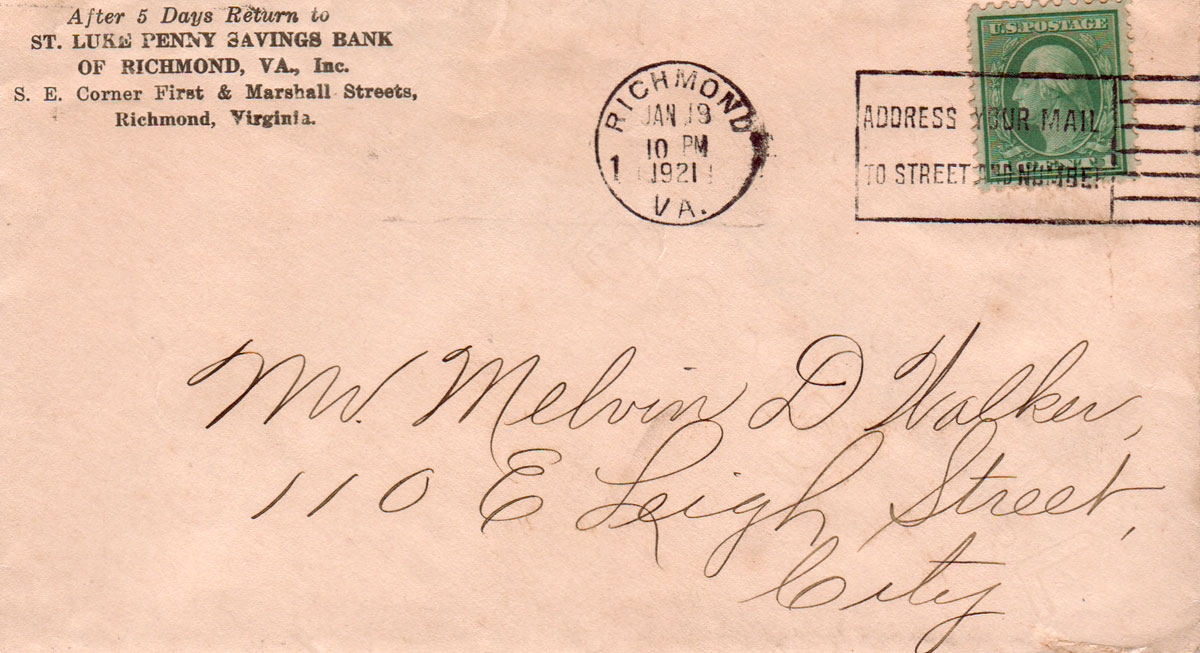 After 5 Days Return to
ST. LUKE PENNY SAVINGS BANK
OF RICHMOND, VA., Inc.
S. E. Corner First & Marshall Streets,
Richmond, Virginia.
RICHMOND
JAN 19
10 PM
1 1921
VA.
U.S. POSTAGE
ADDRESS YOUR MAIL
TO STREET AND NUMBER
CENT
Mr. Melvin D Walker,
110 E Leigh Street,
City